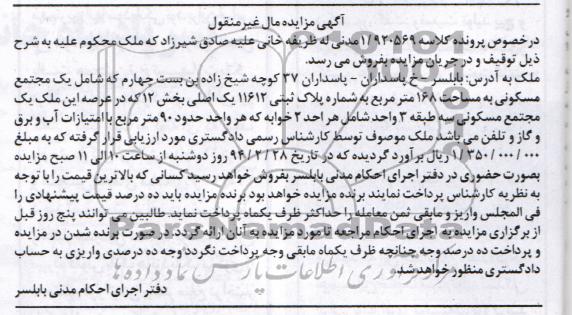 آگهی مزایده مال غیر منقول
درخصوص پرونده کلاسه ۱/۹۲۰۵۶۹ مدنی له ظریفه خانی علیه صادق شیرزاد که ملک محکوم علیه به شرح
ذیل توقیف و در جریان مزایده بفروش می رسد.
ملک به آدرس: بابلسر - خ پاسداران - پاسداران ۳۷ کوچه شیخ زاده بن بست چهارم که شامل یک مجتمع
مسکونی به مساحت ۱۶۸ متر مربع به شماره پلاک ثبتی ۱۱۶۱۲ یک اصلی بخش ۱۲ که در عرصه این ملک یک
مجتمع مسکونی سه طبقه ۳ واحد شامل هر واحد ۲ خوابه که هر واحد حدود ۹۰ متر مربع با امتیازات آب و برق
و گاز و تلفن می باشد ملک موصوف توسط کارشناس رسمی دادگستری مورد ارزیابی قرار گرفته که به مبلغ
۱/۳۵۰/۰۰۰/۰۰۰ ریال برآورد گردیده که در تاریخ ۹۴/۲/۲۸ روز دوشنبه از ساعت ۱۰ الی ۱۱ صبح مزایده
بصورت حضوری در دفتر اجرای احکام مدنی بابلسر بفروش خواهد رسید کسانی که بالاترین قیمت را با توجه
به نظریه کارشناس پرداخت نمایند برنده مزایده خواهد بود برنده مزایده باید ده درصد قیمت پیشنهادی را
فی المجلس واریز و مابقی ثمن معامله را حداکثر ظرف یکماه پرداخت نماید. طالبین می توانند پنج روز قبل
از برگزاری مزایده به اجرای احکام مراجعه تا مورد مزایده به آنان ارائه گردد در صورت برنده شدن در مزایده
و پرداخت ده درصد وجه چنانچه ظرف یکماه مابقی وجه پرداخت نگردد وجه ده درصدی واریزی به حساب
دادگستری منظور خواهد شد.
دفتر اجرای احکام مدنی بابلسر